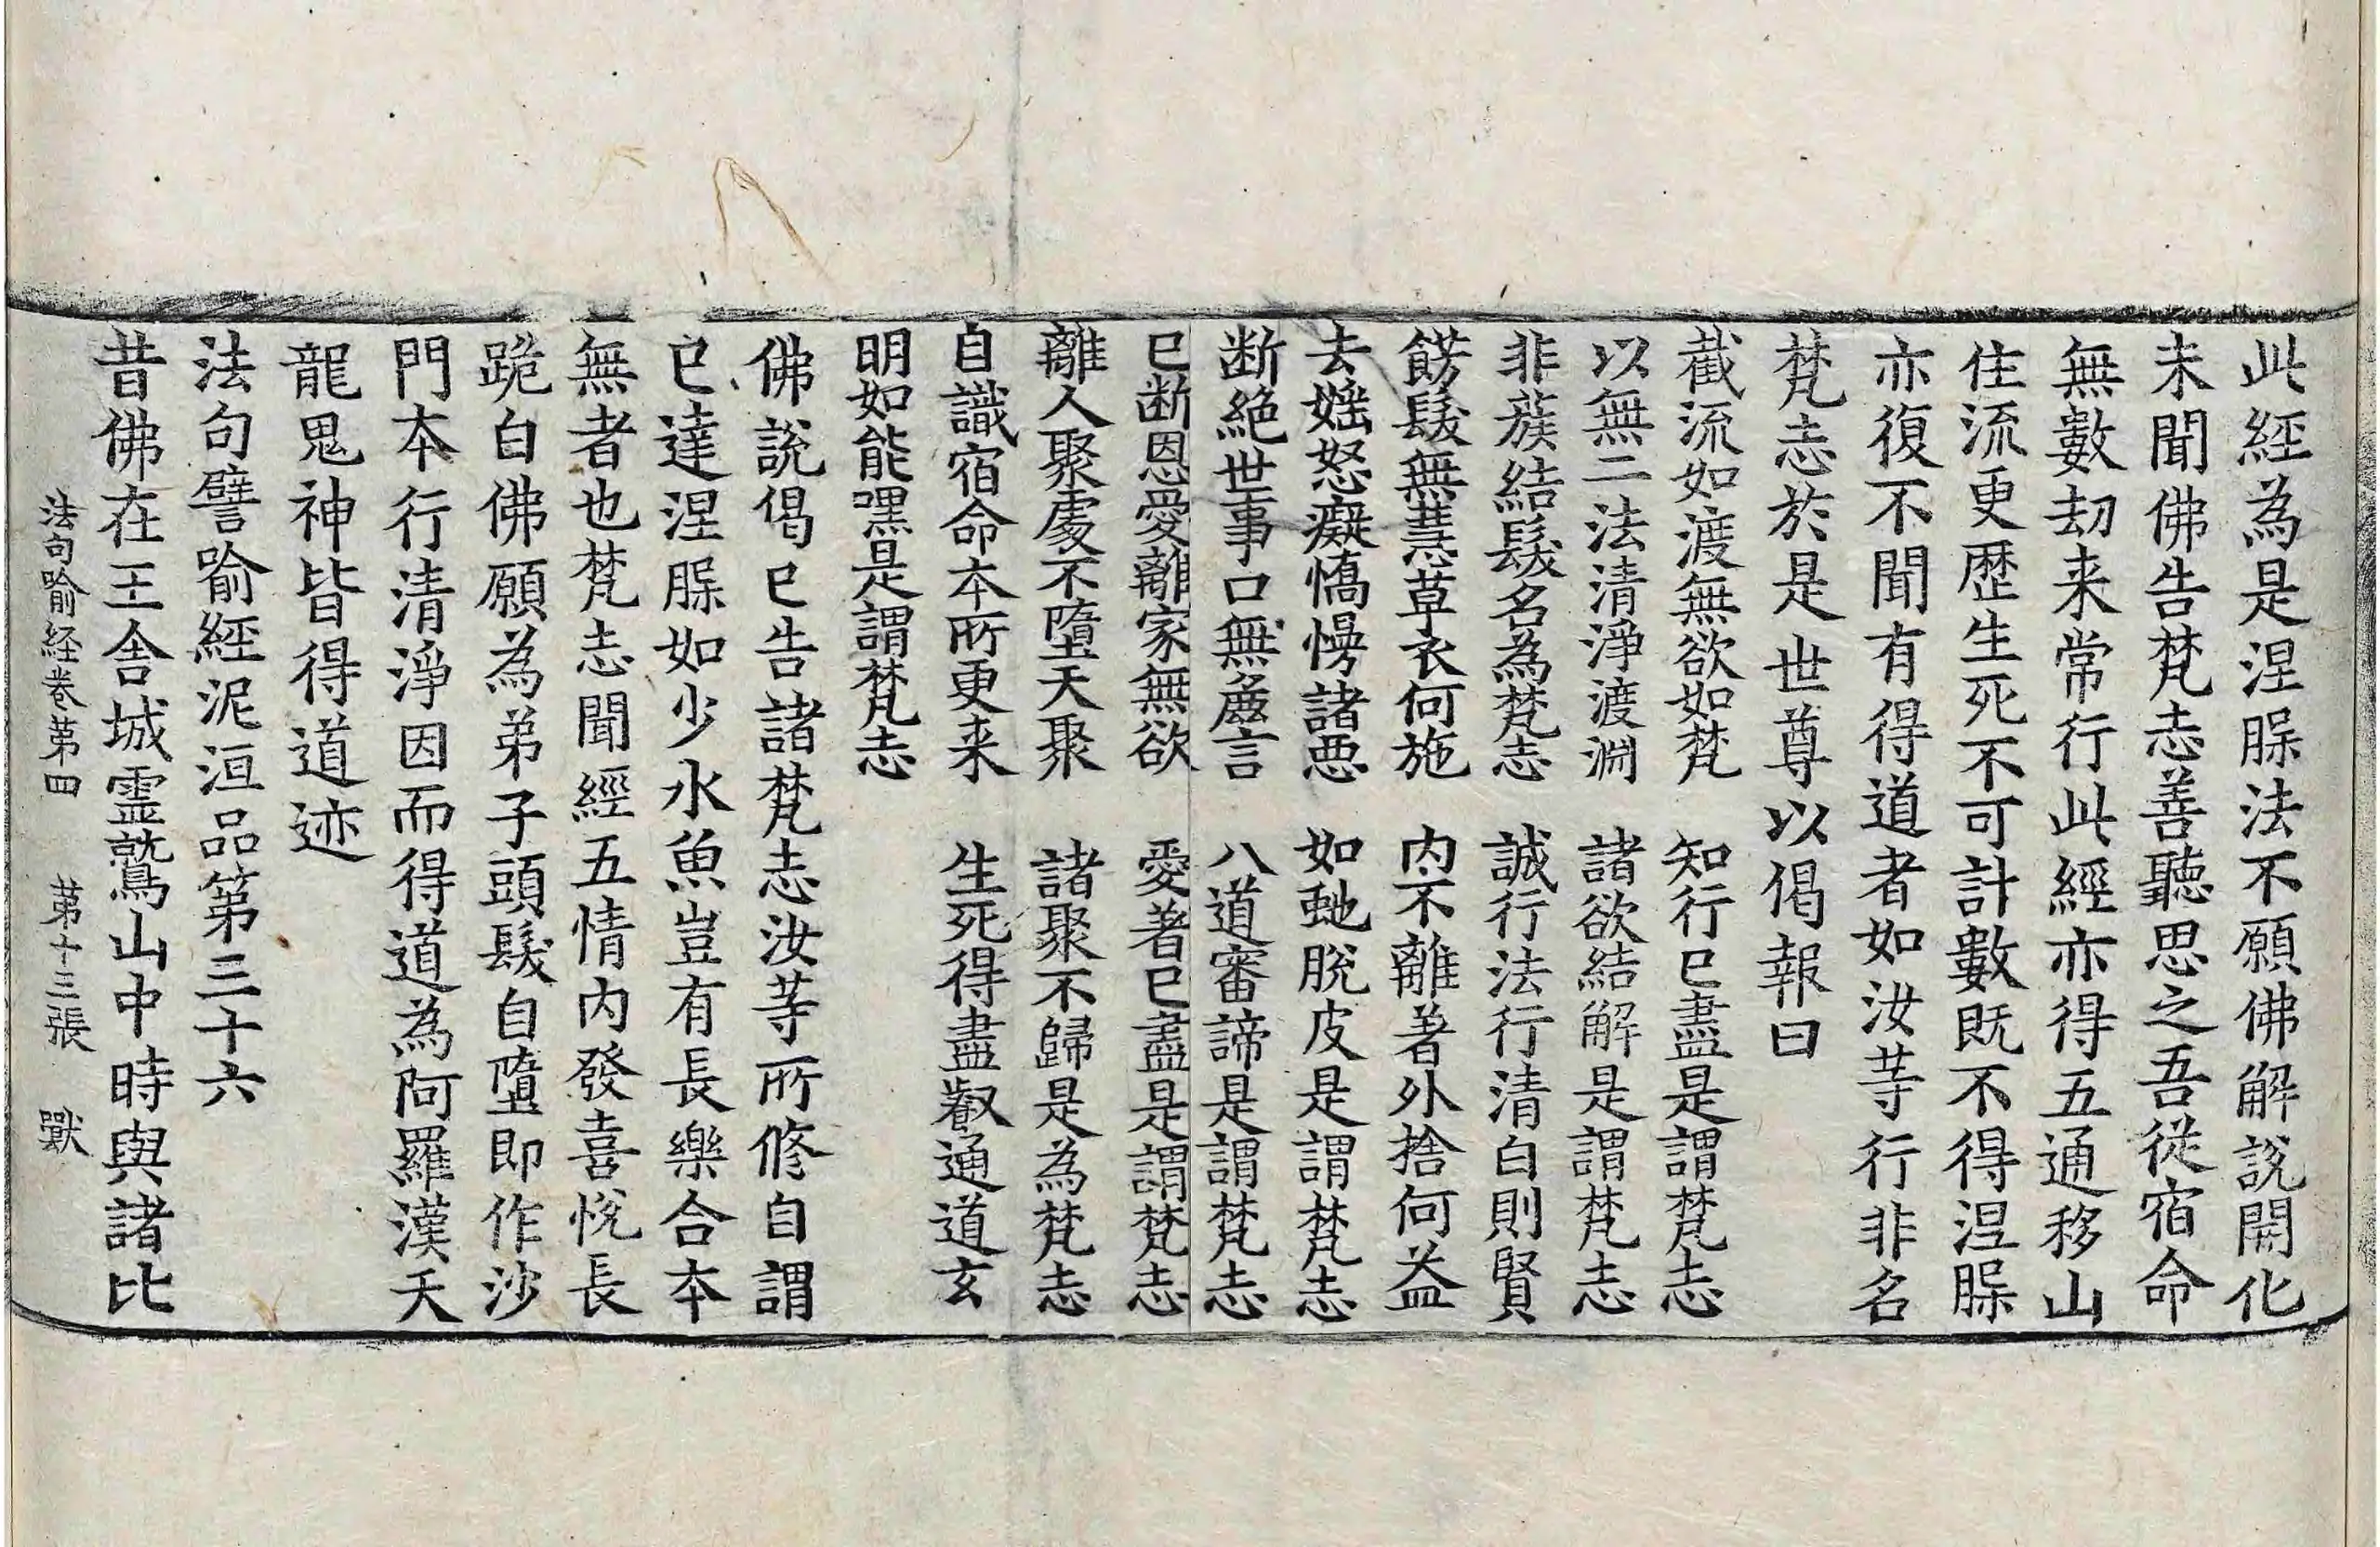 此經為是涅槃法不願佛解說開化
未聞佛告梵志善聽思之吾從宿命
無數劫来常行此經亦得五通移山
住流更歷生死不可計數既不得涅槃
亦復不聞有得道者如汝䓁行非名
梵志於是世尊以偈報曰
截流如渡無欲如梵　知行已盡是謂梵志
以無二法清淨渡淵　諸欲結解是謂梵志
非蔟結髮名為梵志　誠行法行清白則賢
髮無慧草衣何施　内不離著外捨何益
去婬怒癡憍慢諸惡　如虵脫皮是謂梵志
断絶世事口無麁言　八道審諦是謂梵志
已断恩愛離家無欲　愛著已盡是謂梵志
離人聚處不墮天聚　諸聚不歸是為梵志
自識宿命本所更来　生死得盡叡通道玄
明如能嘿是謂梵志
佛說偈已告諸梵志汝䓁所脩自謂
已達涅槃如少水魚豈有長樂合本
無者也梵志聞經五情内發喜悅長
跪白佛願為弟子頭髮自墮即作沙
門本行清淨因而得道為阿羅漢天
龍鬼神皆得道迹
法句譬喻經泥洹品第三十六
昔佛在王舍城靈鷲山中時與諸比
法句喻経卷苐四　苐十三張　獸